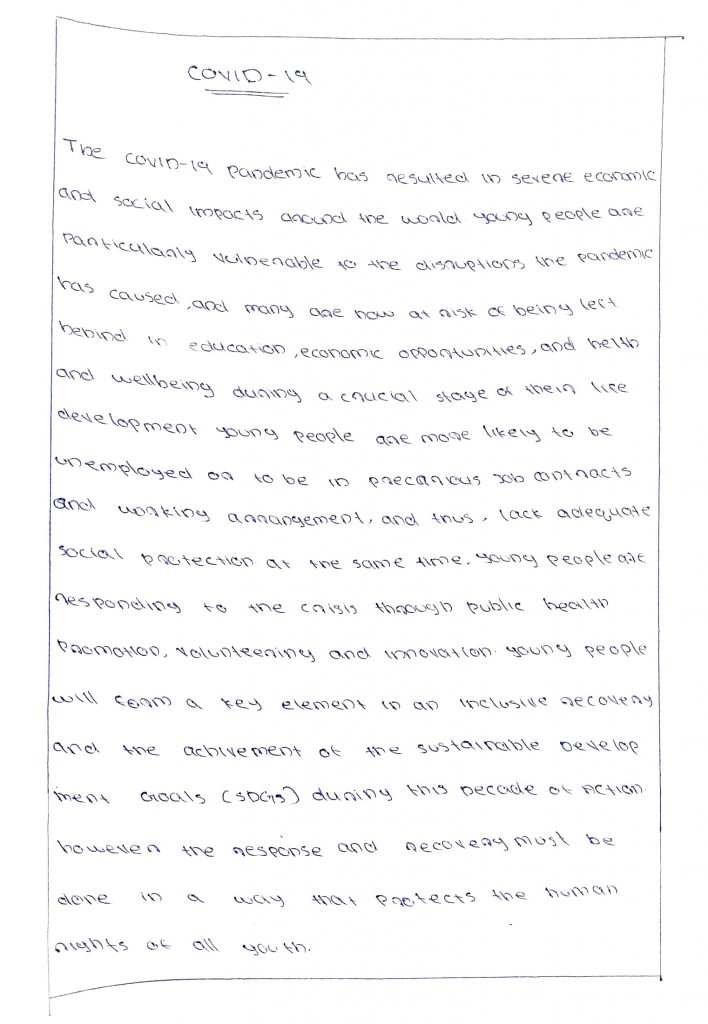 COVID-19
The COVID-19 pandemic has resulted in severe economic
and social impacts around the world young people are
particularly vulnerable to the disruptions the pandemic
has caused, and many are now at risk of being left
behind in education, economic opportunities, and helth
and wellbeing during a crucial stage of their life
development young people are more likely to be
unemployed or to be in precarious job contracts
and working arrangement, and thus, lack adequate
social protection at the same time. young people are
responding to the crisis through public health
promotion, volunteering and innovation. young people
will form a key element in an inclusive recovery
and the achivement of the sustainable Develop
ment Goals (SDGs) during this Decade of Action.
however the response and recovery must be
done in a way that protects the human
rights of all youth.